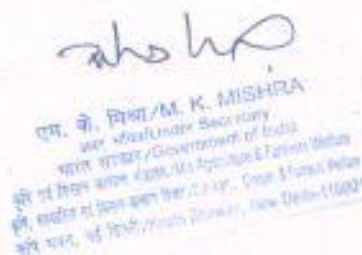 एम. के. मिश्रा/M. K. MISHRA
अवर सचिव/Under Secretary
भारत सरकार/Government of India
कृषि एवं किसान कल्याण Agriculture & Farmers Welfare
कृषि, सहकारिता एवं किसान कल्याण विभाग/D/o Agr., Coop. & Farmers Welfare
कृषि भवन, नई दिल्ली/Krishi Bhawan, New Delhi-110001